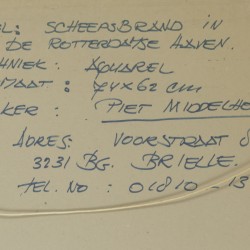 EL: SCHEEPSBRAND IN
DE ROTTERDAMSE HAVEN.
CHNIEK: AQUAREL
MAAT: 74x62 cm
KER: PIET MIDDELHO
ADRES: VOORSTRAAT 8
3231 BG. BRIELLE.
TEL. NO: 01810-13